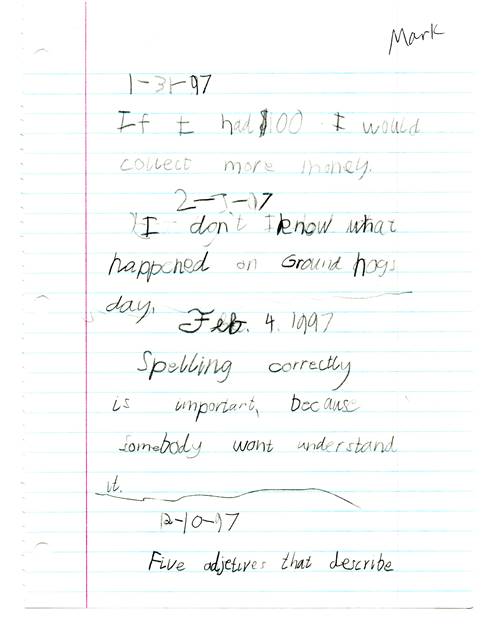 Mark
1-31-97
If I had $100 I would
collect more money.
2-3-97
I don't know what
happened on Ground hogs
day.
Feb. 4. 1997
Spelling correctly
is important, because
somebody wont understand
it.
2-10-97
Five adjetives that describe